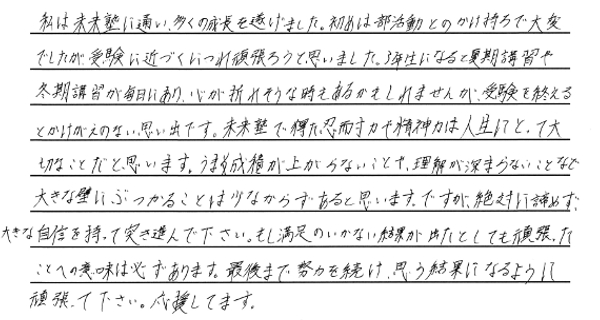 私は未来塾に通い、多くの成長を遂げました。初めは部活動とのかけ持ちで大変
でしたが受験に近づくにつれ頑張ろうと思いました。3年生になると夏期講習や
冬期講習が毎日にあり、心が折れそうな時もあるかもしれませんが、受験を終える
とかけがえのない思い出です。未来塾で得た忍耐力や精神力は人生にとって大
切なことだと思います。うまく成績が上がらないことや、理解が深まらないことなど
大きな壁にぶつかることは少なからずあると思います。ですが、絶対に諦めず、
大きな自信を持って突き進んで下さい。もし満足のいかない結果が出たとしても頑張った
ことへの意味は必ずあります。最後まで努力を続け、思う結果になるように
頑張って下さい。応援してます。